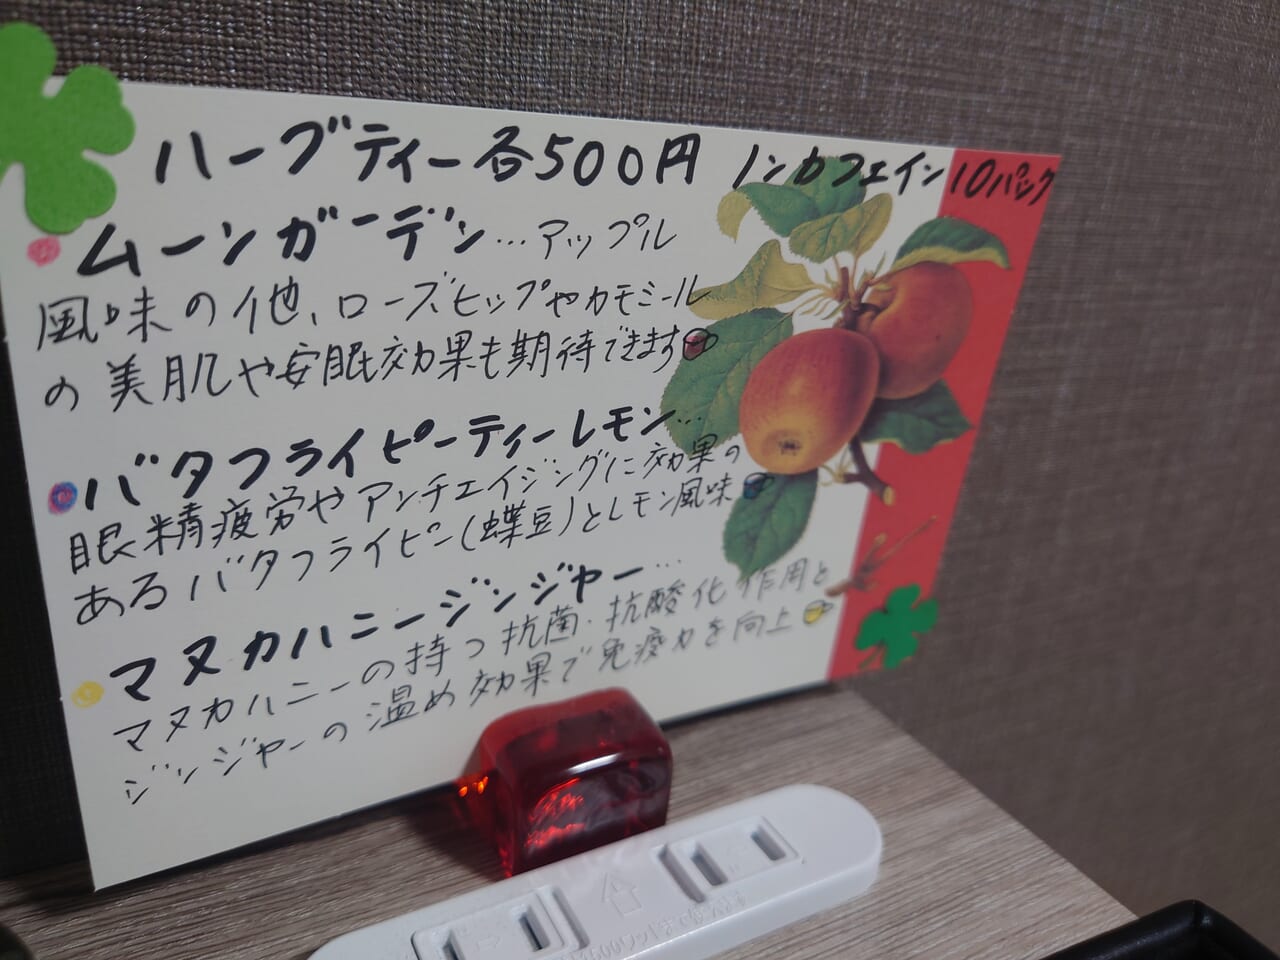 ハーブティー各500円 ノンカフェイン 10パック
ムーンガーデン…アップル
風味の他、ローズヒップやカモミール
の美肌や安眠効果も期待できます
バタフライピーティーレモン…
眼精疲労やアンチエイジングに効果の
あるバタフライピー(蝶豆)とレモン風味
マヌカハニージンジャー…
マヌカハニーの持つ抗菌・抗酸化作用と
ジンジャーの温め効果で免疫力を向上